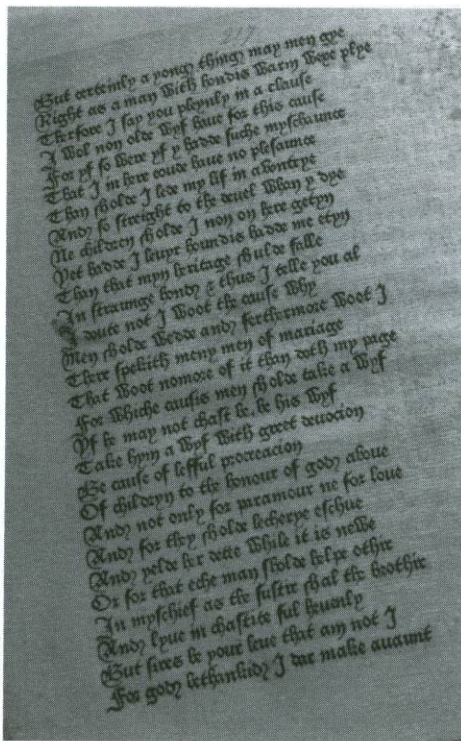 217
But certeinly a yong thing may men gye
Right as a man With hondis Warm Wexe plye
Therfore I say you pleynly in a clause
I Wol non olde Wyf haue for this cause
For yf so Were yf y hadde suche myschaunce
That I in here coude haue no plesaunce
Than sholde I lede my lif in avoutrye
And so streight to the deuel Whan y dye
Ne children sholde I non on here getyn
Yet hadde I leuyr houndis hadde me etyn
Than that myn heritage shulde falle
In straunge hond & thus I telle you al
I doute not I Woot the cause Why
Men sholde Wedde and ferthermore Woot I
There spekith meny men of mariage
That Woot nomore of it than doth my page
For Whiche causis men sholde take a Wyf
Yf he may not chast be, be his lyf
Take hym a Wyf With greet deuocion
Be cause of lefful procreacion
Of childryn to the honour of god aboue
And not only for paramour ne for loue
And for they sholde lecherye eschue
And yelde her dette While it is neWe
Or for that eche man sholde helpe othir
In myschief as the sustir shal the brothir
And lyue in chastite ful heuenly
But sires be your leue that am not I
For god be thankid I dar make auaunt